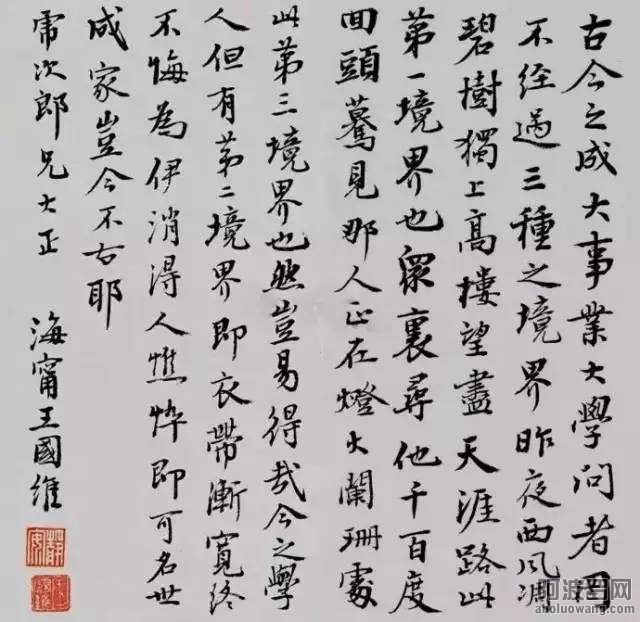 古今之成大事業大學問者罔
不经過三種之境界昨夜西風凋
碧樹獨上高樓望盡天涯路此
第一境界也衆裏尋他千百度
回頭驀見那人正在燈火闌珊處
此第三境界也然豈易得哉今之學
人但有第二境界即衣帶漸寬終
不悔為伊消得人憔悴即可名世
成家豈今不古耶
次郎兄大正
海甯王國維
靜安
阿波罗网
aboluowang.com